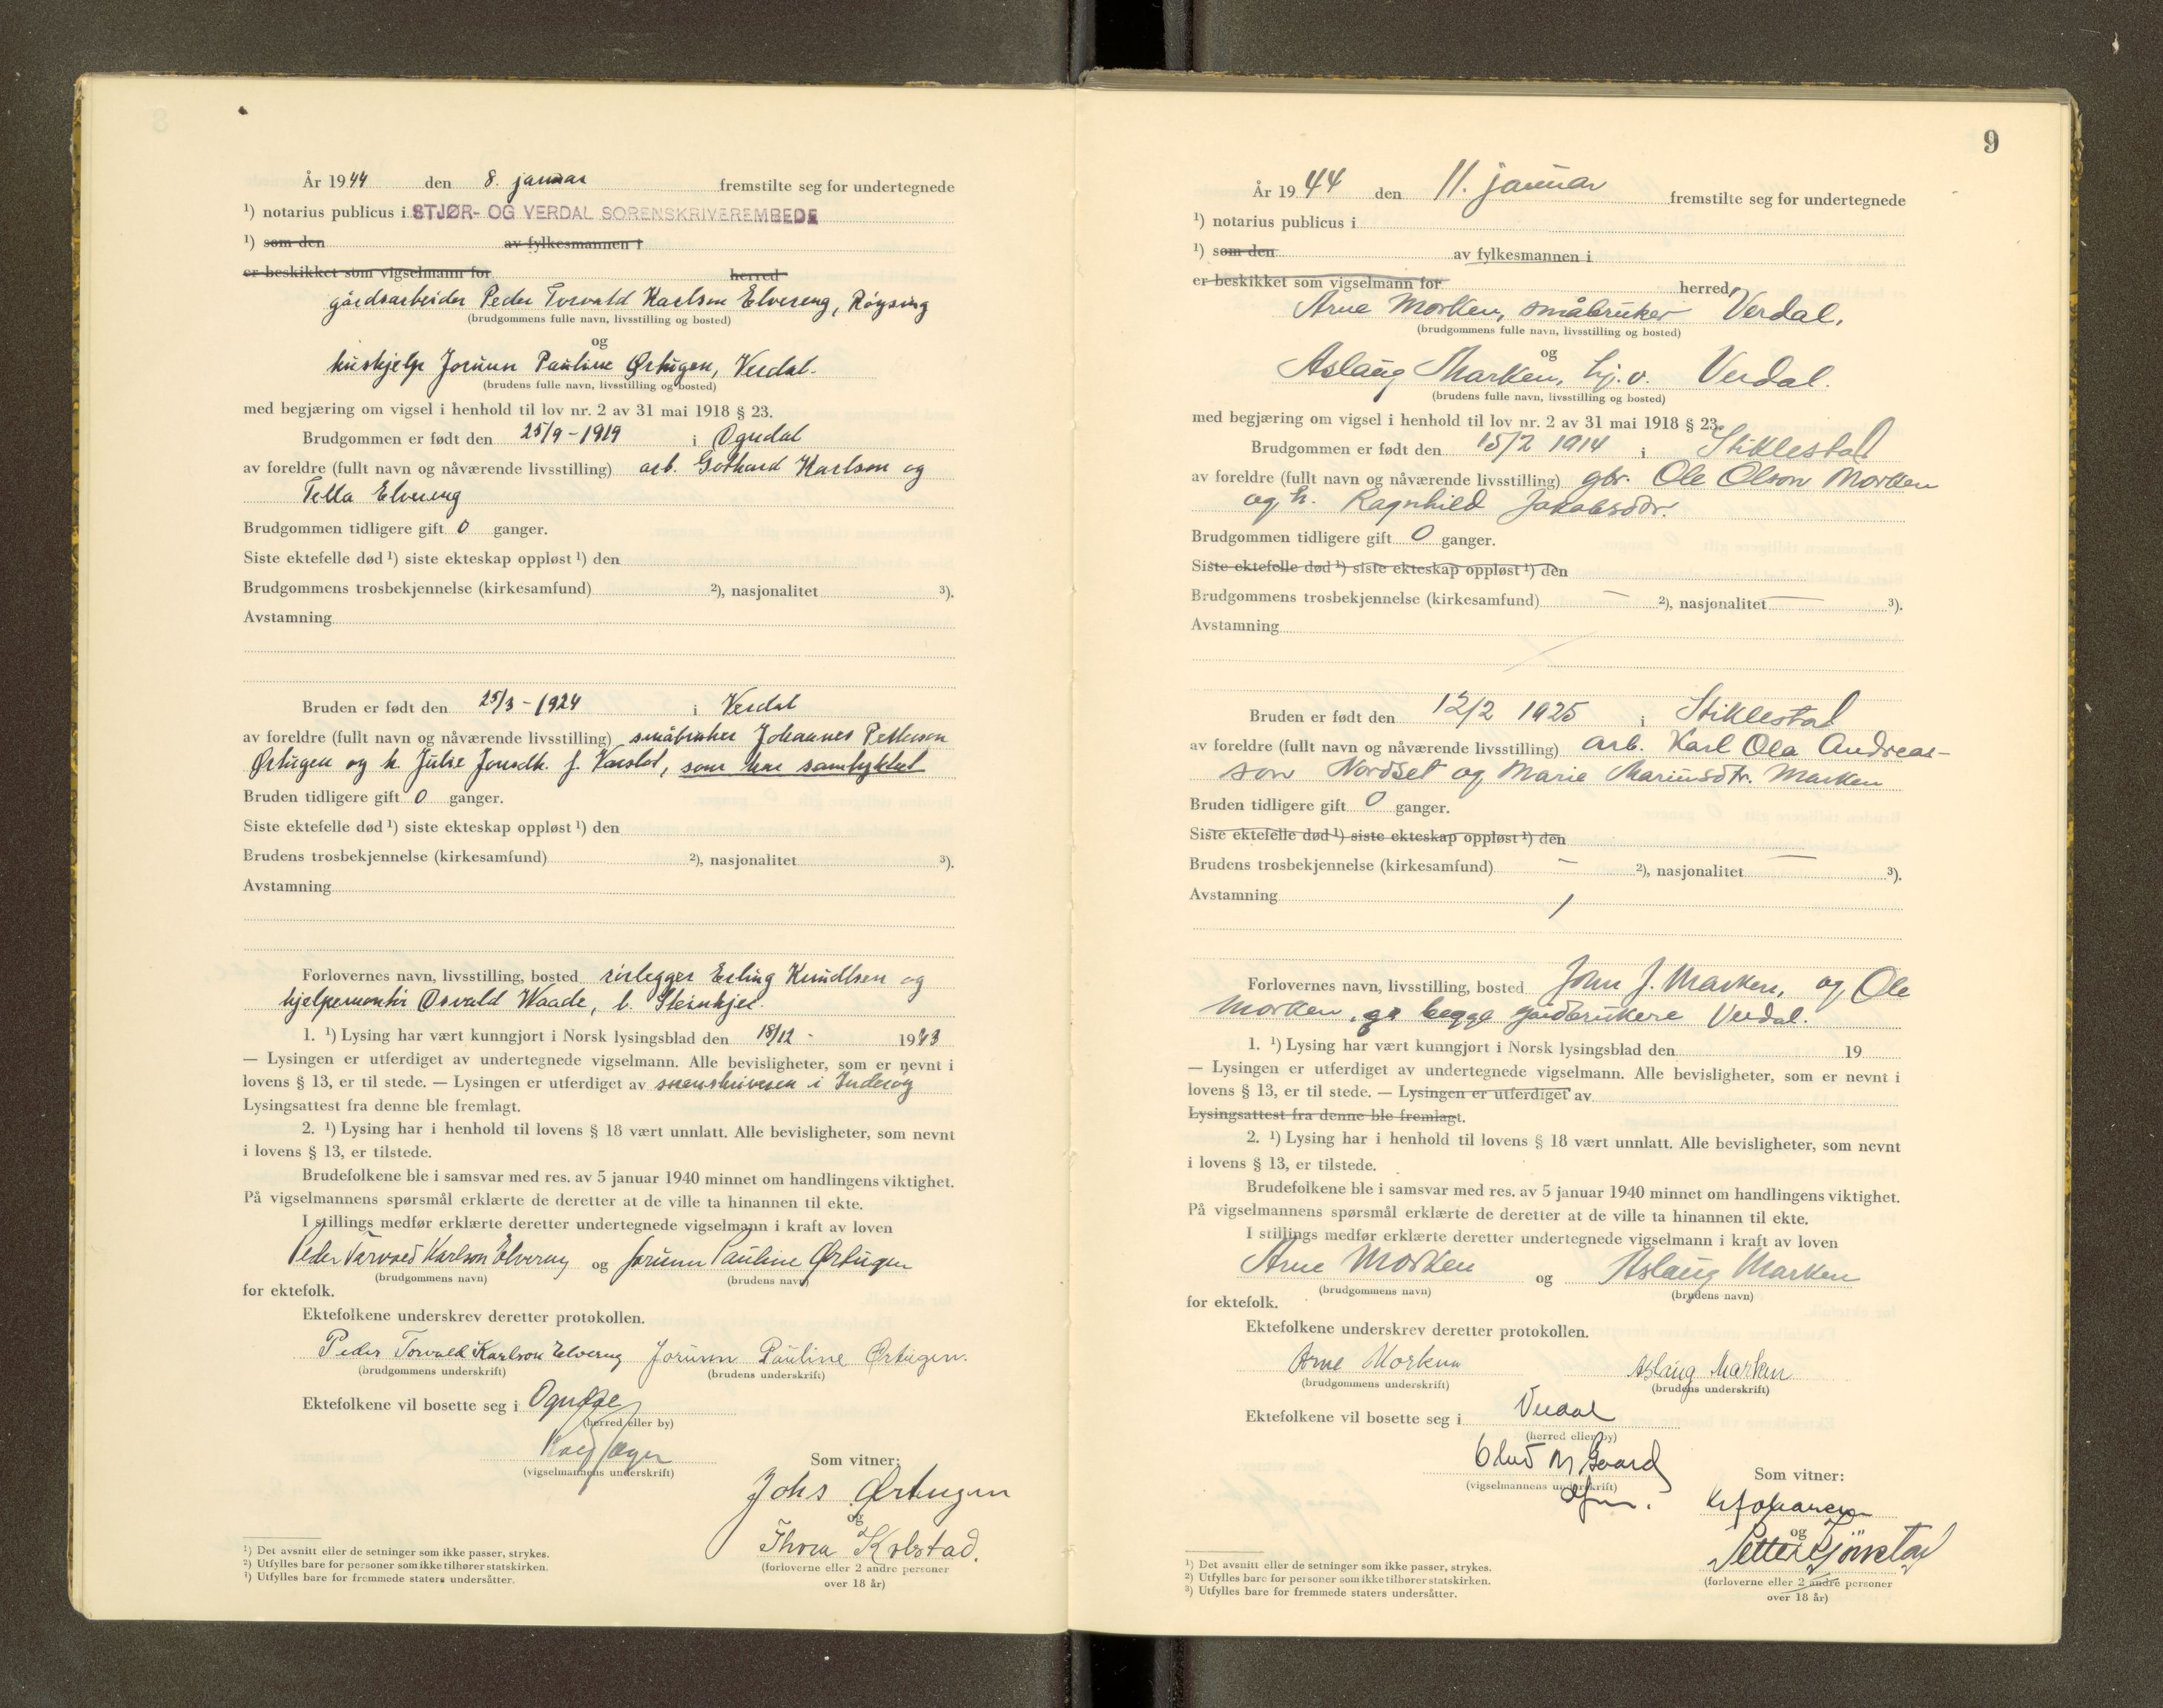 År 1944 den 8. januar fremstilte seg for undertegnede
¹) notarius publicus i STJØR- OG VERDAL SORENSKRIVEREMBEDE
¹) som den av fylkesmannen i
er beskikket som vigselmann for herred
gårdsarbeider Peder Torvald Karlson Elvereng, Røysing
(brudgommens fulle navn, livsstilling og bosted)
og
hushjelp Jorunn Pauline Ørtugen, Verdal.
(brudens fulle navn, livsstilling og bosted)
med begjæring om vigsel i henhold til lov nr. 2 av 31 mai 1918 § 23.
Brudgommen er født den 25/9 - 1919 i Ogndal
av foreldre (fullt navn og nåværende livsstilling) arb. Gothard Karlson og
Tella Elvereng
Brudgommen tidligere gift 0 ganger.
Siste ektefelle død ¹) siste ekteskap oppløst ¹) den
Brudgommens trosbekjennelse (kirkesamfund) ²), nasjonalitet ³).
Avstamning
Bruden er født den 25/3 - 1924 i Verdal
av foreldre (fullt navn og nåværende livsstilling) småbruker Johannes Petterson
Ørtugen og h. Julie Jonsdtr. f. , som har samtykket
Bruden tidligere gift 0 ganger.
Siste ektefelle død ¹) siste ekteskap oppløst ¹) den
Brudens trosbekjennelse (kirkesamfund) ²), nasjonalitet ³).
Avstamning
Forlovernes navn, livsstilling, bosted rørlegger Erling Knudtsen og
hjelpemontør Osvald Waade, b. Steinkjer.
1. ¹) Lysing har vært kunngjort i Norsk lysingsblad den 18/12 - 1943
— Lysingen er utferdiget av undertegnede vigselmann. Alle bevisligheter, som er nevnt i
lovens § 13, er til stede. — Lysingen er utferdiget av sorenskriveren i Inderøy
Lysingsattest fra denne ble fremlagt.
2. ¹) Lysing har i henhold til lovens § 18 vært unnlatt. Alle bevisligheter, som nevnt
i lovens § 13, er tilstede.
Brudefolkene ble i samsvar med res. av 5 januar 1940 minnet om handlingens viktighet.
På vigselmannens spørsmål erklærte de deretter at de ville ta hinannen til ekte.
I stillings medfør erklærte deretter undertegnede vigselmann i kraft av loven
Peder Torvald Karlson Elvereng og Jorunn Pauline Ørtugen
(brudgommens navn) (brudens navn)
for ektefolk.
Ektefolkene underskrev deretter protokollen.
Peder Torvald Karlson Elvereng Jorunn Pauline Ørtugen.
(brudgommens underskrift) (brudens underskrift)
Ektefolkene vil bosette seg i Ogndal
(herred eller by)
(vigselmannens underskrift)
Som vitner:
Johs Ørtugen
og
Thora Kolstad.
(forloverne eller 2 andre personer
over 18 år)
¹) Det avsnitt eller de setninger som ikke passer, strykes.
²) Utfylles bare for personer som ikke tilhører statskirken.
³) Utfylles bare for fremmede staters undersåtter.
9
År 1944 den 11. januar fremstilte seg for undertegnede
¹) notarius publicus i
¹) som den av fylkesmannen i
er beskikket som vigselmann for herred
Arne Morken, småbruker Verdal.
(brudgommens fulle navn, livsstilling og bosted)
og
Aslaug Marken, hj.v. Verdal.
(brudens fulle navn, livsstilling og bosted)
med begjæring om vigsel i henhold til lov nr. 2 av 31 mai 1918 § 23.
Brudgommen er født den 15/2 1914 i Stiklestad
av foreldre (fullt navn og nåværende livsstilling) gbr. Ole Olson Morken
og h. Ragnhild Jakobsdtr.
Brudgommen tidligere gift 0 ganger.
Siste ektefelle død ¹) siste ekteskap oppløst ¹) den
Brudgommens trosbekjennelse (kirkesamfund) — ²), nasjonalitet — ³).
Avstamning
Bruden er født den 12/2 1925 i Stiklestad
av foreldre (fullt navn og nåværende livsstilling) arb. Karl Ola Andreas-
son Nordset og Marie Mariusdtr. Marken
Bruden tidligere gift 0 ganger.
Siste ektefelle død ¹) siste ekteskap oppløst ¹) den
Brudens trosbekjennelse (kirkesamfund) — ²), nasjonalitet — ³).
Avstamning
Forlovernes navn, livsstilling, bosted John J. Marken, og Ole
Morken, begge gårdbrukere Verdal.
1. ¹) Lysing har vært kunngjort i Norsk lysingsblad den 19
— Lysingen er utferdiget av undertegnede vigselmann. Alle bevisligheter, som er nevnt i
lovens § 13, er til stede. — Lysingen er utferdiget av
Lysingsattest fra denne ble fremlagt.
2. ¹) Lysing har i henhold til lovens § 18 vært unnlatt. Alle bevisligheter, som nevnt
i lovens § 13, er tilstede.
Brudefolkene ble i samsvar med res. av 5 januar 1940 minnet om handlingens viktighet.
På vigselmannens spørsmål erklærte de deretter at de ville ta hinannen til ekte.
I stillings medfør erklærte deretter undertegnede vigselmann i kraft av loven
Arne Morken og Aslaug Marken
(brudgommens navn) (brudens navn)
for ektefolk.
Ektefolkene underskrev deretter protokollen.
Arne Morken Aslaug Marken
(brudgommens underskrift) (brudens underskrift)
Ektefolkene vil bosette seg i Verdal
(herred eller by)
(vigselmannens underskrift)
Som vitner:
og
Petter
(forloverne eller 2 andre personer
over 18 år)
¹) Det avsnitt eller de setninger som ikke passer, strykes.
²) Utfylles bare for personer som ikke tilhører statskirken.
³) Utfylles bare for fremmede staters undersåtter.